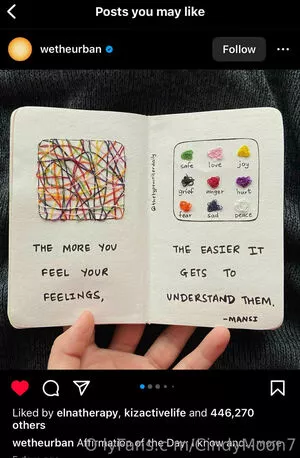 Posts you may like
wetheurban
Follow
THE MORE YOU
FEEL YOUR
FEELINGS,
@thehypewriterdaily
safe love joy
grief anger hurt
fear sad peace
THE EASIER IT
GETS TO
UNDERSTAND THEM.
-MANSI
Liked by elnatherapy, kizactivelife and 446,270
others
wetheurban Affirmation of the Day: I know and... more